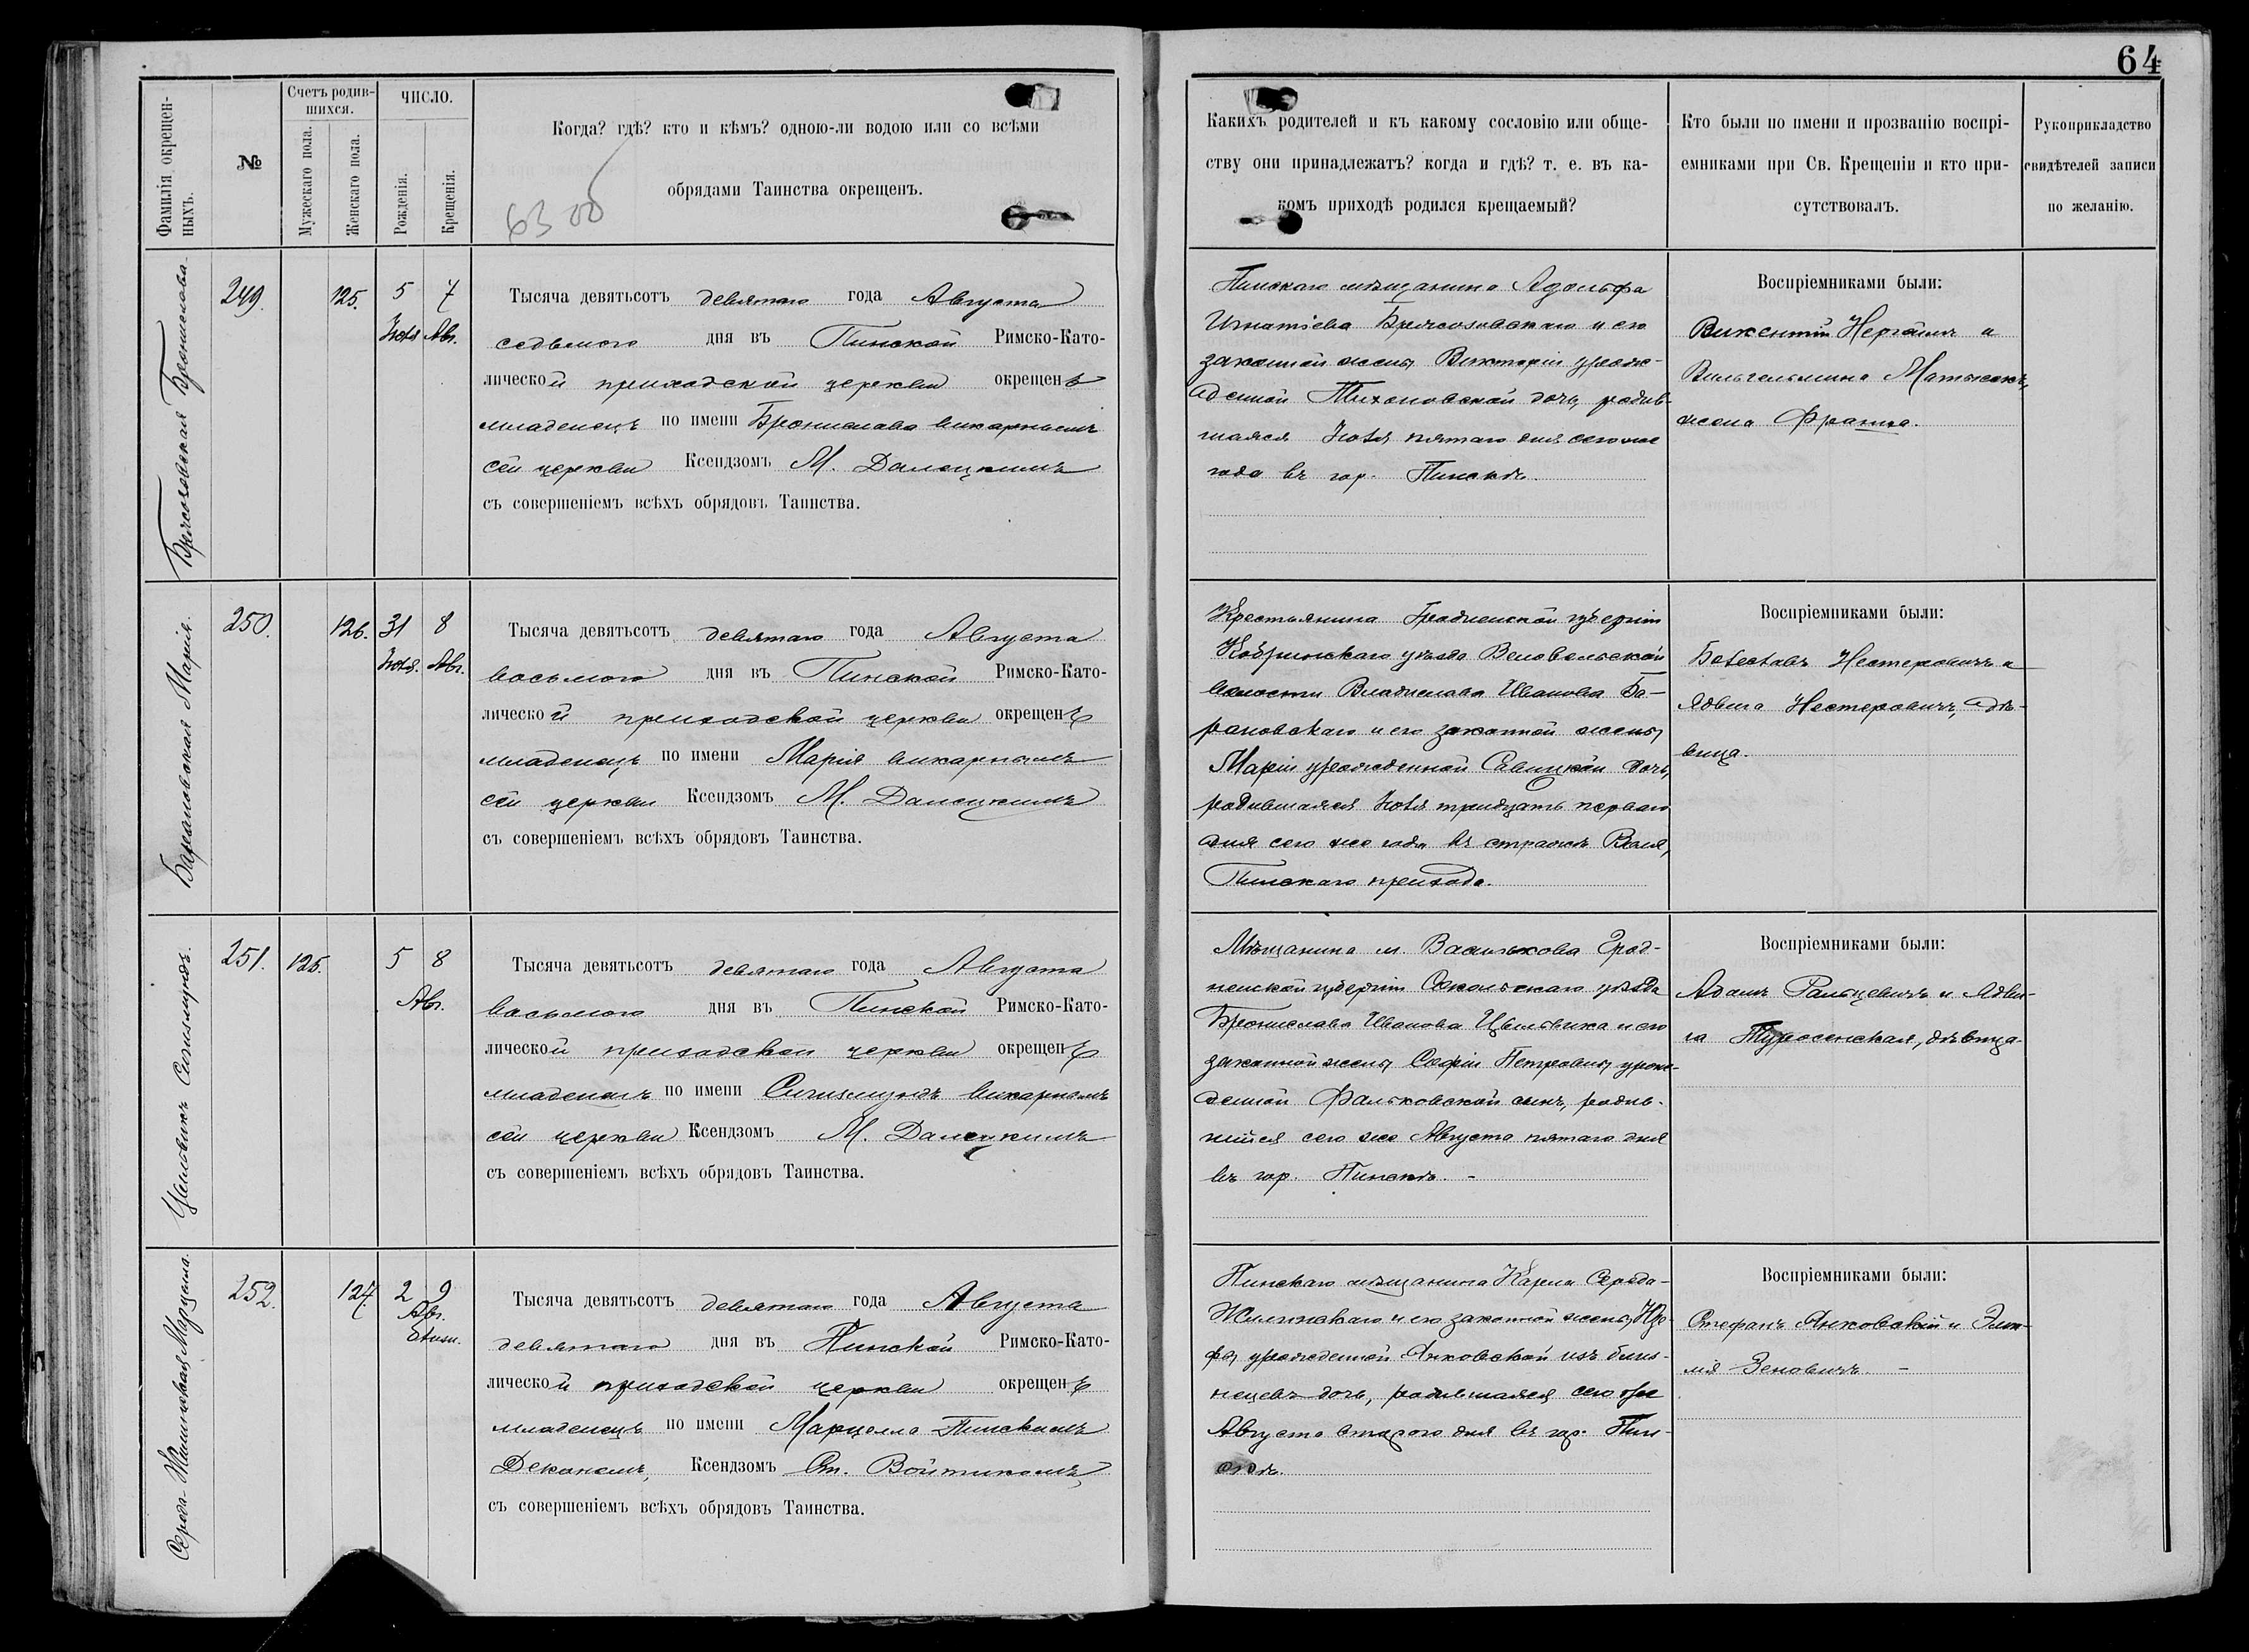 64
Фамилія окрещен-
ныхъ.
№
Счетъ родив-
шихся.
Мужескаго пола.
Женскаго пола.
ЧИСЛО.
Рожденія.
Крещенія.
Когда? гдѣ? кто и кѣмъ? одною-ли водою или со всѣми
обрядами Таинства окрещенъ.
6300
Какихъ родителей и къ какому сословію или обще-
ству они принадлежатъ? когда и гдѣ? т. е. въ ка-
комъ приходѣ родился крещаемый?
Кто были по имени и прозванію воспрі-
емниками при Св. Крещеніи и кто при-
сутствовалъ.
Рукоприкладство
свидѣтелей записи
по желанію.
Бронислава
249.
125.
5 7
Іюля Авг.
Тысяча девятьсотъ девятаго года Августа
седьмого дня въ Пинской Римско-Като-
лической приходской церкви окрещенъ
младенецъ по имени Бронислава викарнымъ
сей церкви Ксендзомъ М. Далецкимъ
съ совершеніемъ всѣхъ обрядовъ Таинства.
Пинскаго мѣщанина Адольфа
Игнатіева и его
законной жены Викторіи урож-
денной Тихоновской дочь, родив-
шаяся Іюля пятаго дня сего же
года въ гор. Пинскѣ.
Воспріемниками были:
Викентій и
Вильгельмина
жена Франца.
Барановская Марія.
250.
126.
31 8
Іюля. Авг.
Тысяча девятьсотъ девятаго года Августа
восьмого дня въ Пинской Римско-Като-
лической приходской церкви окрещенъ
младенецъ по имени Марія викарнымъ
сей церкви Ксендзомъ М. Далецкимъ
съ совершеніемъ всѣхъ обрядовъ Таинства.
Крестьянина Гродненской губерніи
Кобринскаго уѣзда
волости Владислава Иванова Ба-
рановскаго и его законной жены
Маріи урожденной Савицкой дочь,
родившаяся Іюля тридцать перваго
дня сего же года въ Воля,
Пинскаго прихода.
Воспріемниками были:
Болеславъ Нестеровичъ и
Ядвига Нестеровичъ, дѣ-
вица.
Сигизмундъ.
251.
125.
5 8
Авг.
Тысяча девятьсотъ девятаго года Августа
восьмого дня въ Пинской Римско-Като-
лической приходской церкви окрещенъ
младенецъ по имени Сигизмундъ викарнымъ
сей церкви Ксендзомъ М. Далецкимъ
съ совершеніемъ всѣхъ обрядовъ Таинства.
Мѣщанина м. Василькова Грод-
ненской губерніи Сокольскаго уѣзда
Бронислава Иванова и его
законной жены Софіи Петровны, урож-
денной Фальковской сынъ, родив-
шійся сего же Августа пятаго дня
въ гор. Пинскѣ. -
Воспріемниками были:
Адамъ Ральцевичъ и Ядви-
га дѣвица.
Середа-Жилинская Марцелла.
252.
127.
2 9
Авг.
Тысяча девятьсотъ девятаго года Августа
девятаго дня въ Пинской Римско-Като-
лической приходской церкви окрещенъ
младенецъ по имени Марцелла Пинскимъ
Деканомъ, Ксендзомъ Войтикомъ
съ совершеніемъ всѣхъ обрядовъ Таинства.
Пинскаго мѣщанина Карла Середа-
Жилинскаго и его законной жены,
урожденной Янковской изъ близ-
нецевъ дочь, родившаяся сего же
Августа второго дня въ гор. Пин-
скѣ.
Воспріемниками были:
Стефанъ Янковскій и Эми-
лія Зеновичъ. -